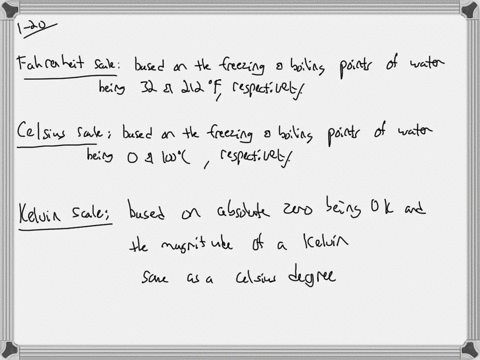 1-20
Fahrenheit scale: based on the freezing & boiling points of water
being 32 & 212 °F, respectively
Celsius scale; based on the freezing & boiling points of water
being 0 & 100°C , respectively
Kelvin scale; based on absolute zero being 0 K and
the magnitude of a Kelvin
same as a celsius degree